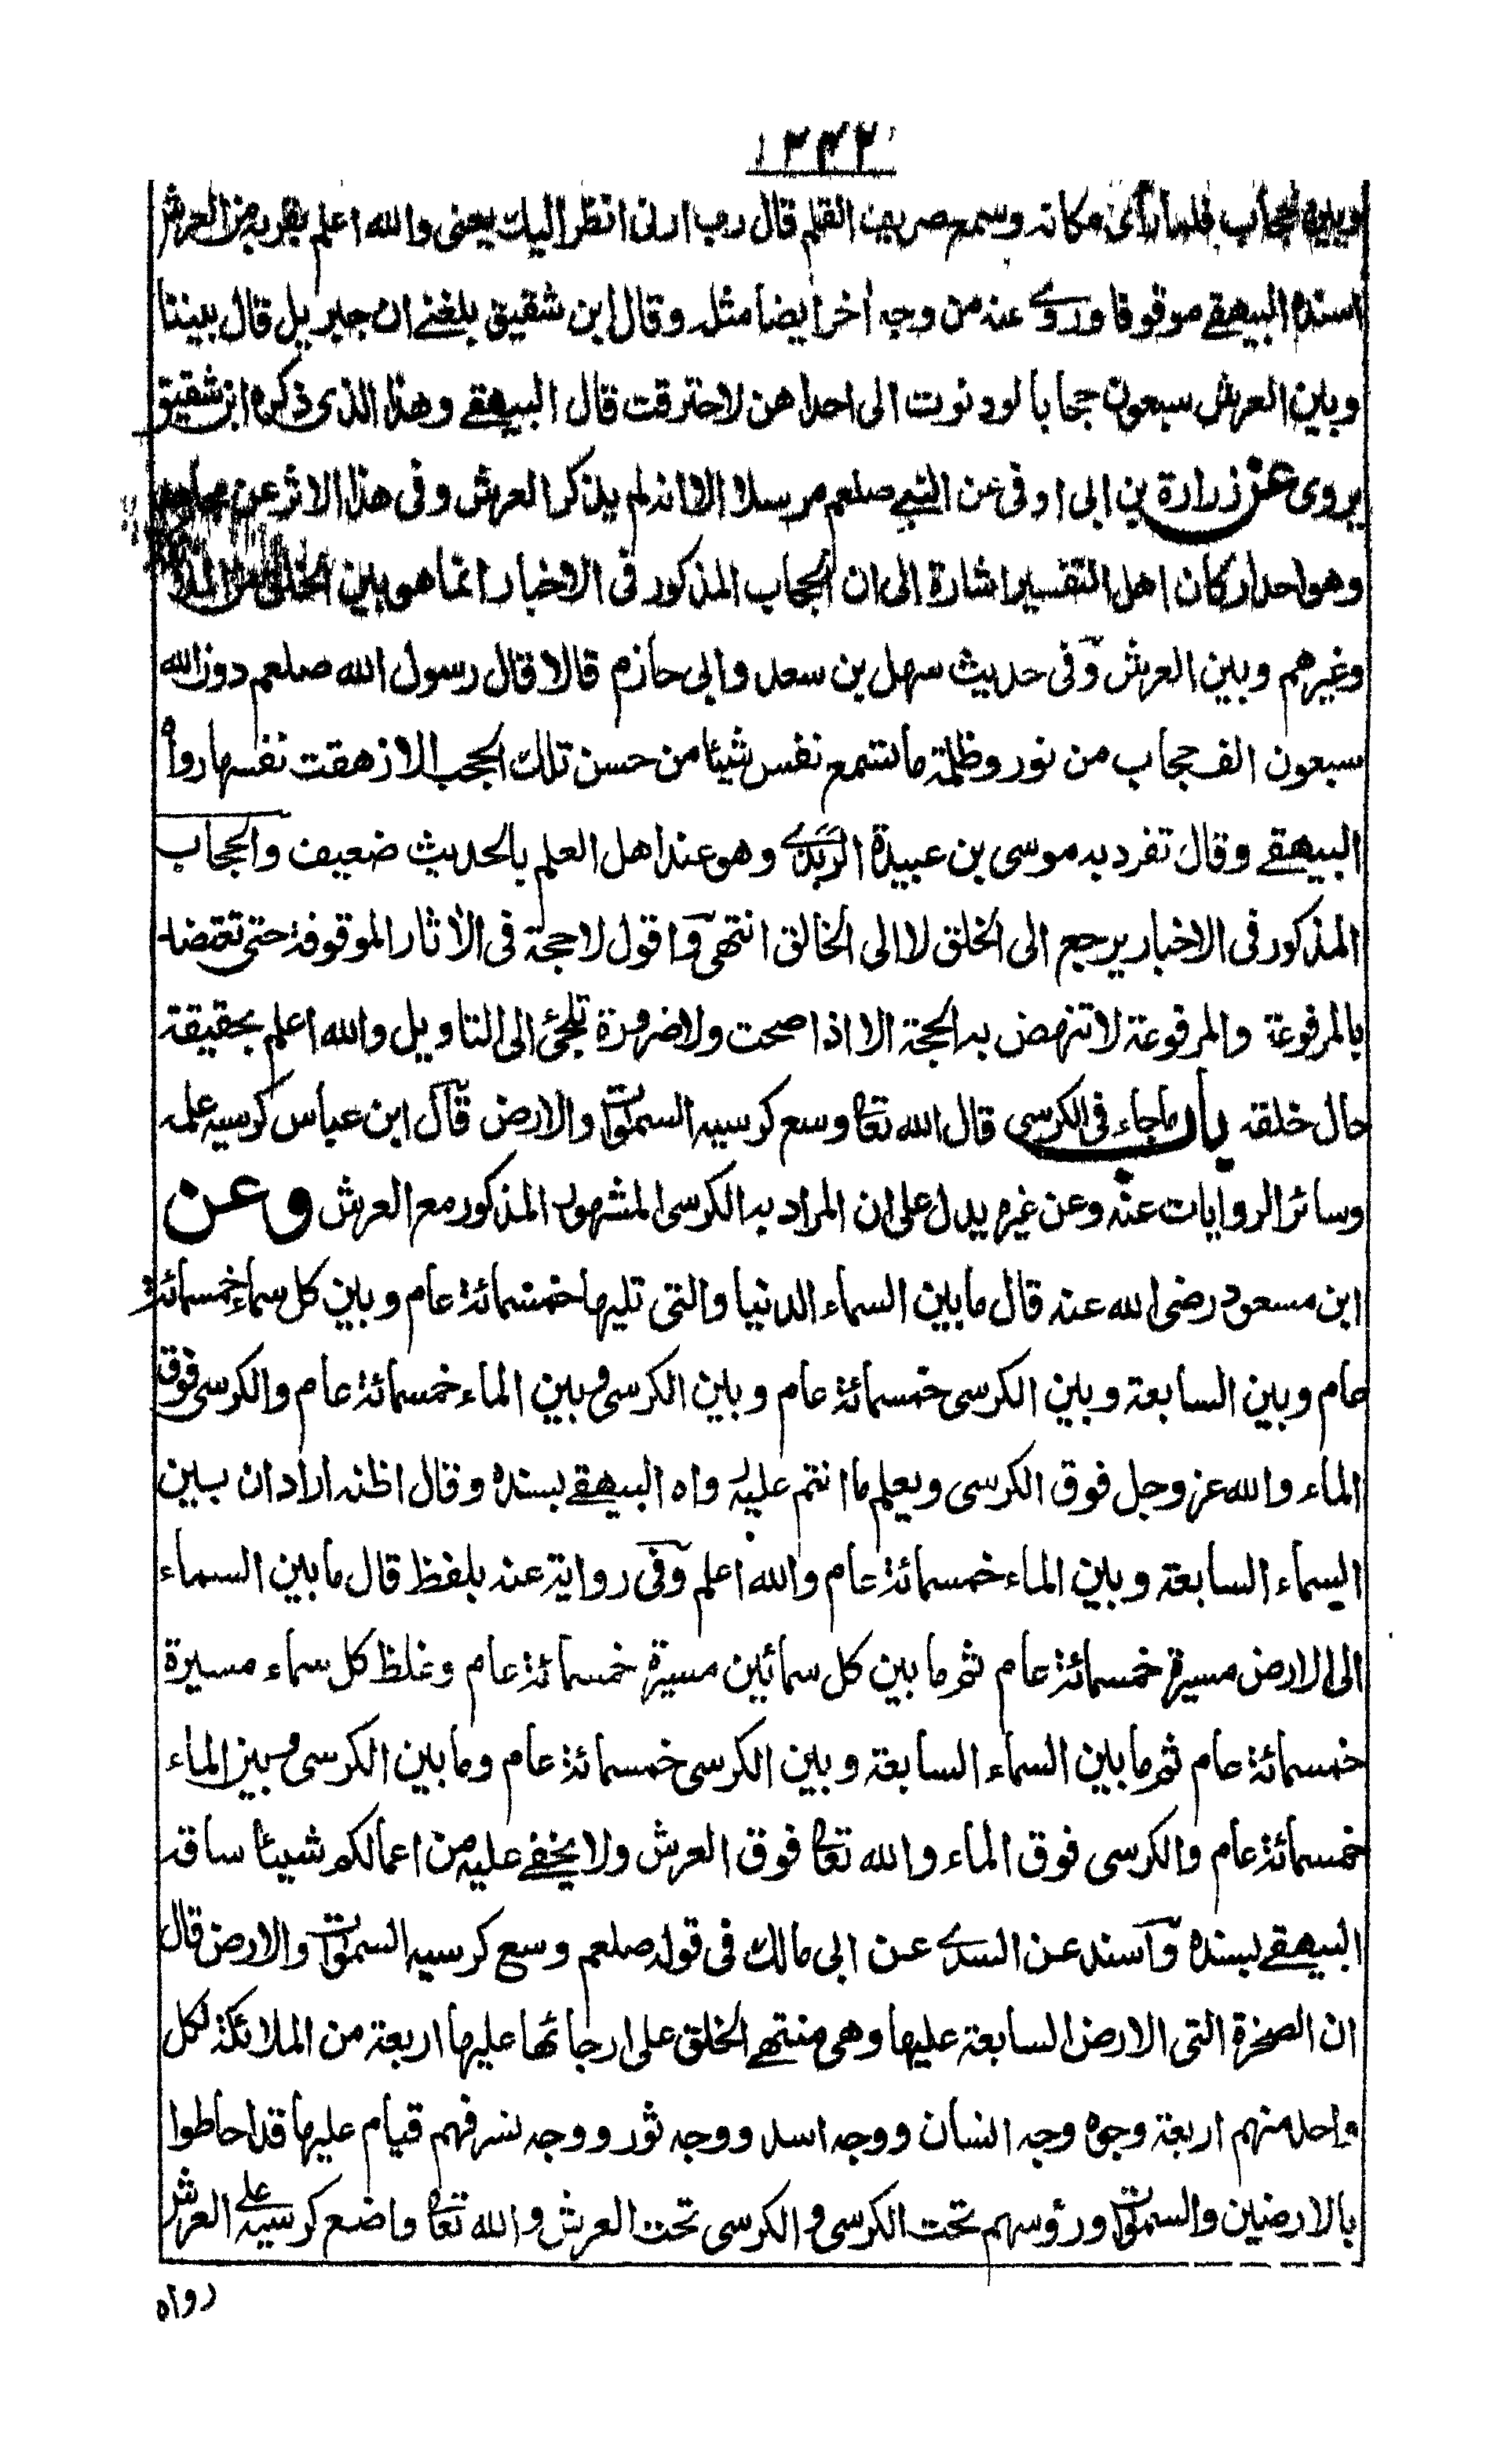 ١٣٤٢
وبين الحجاب فلما رأى مكانه وسمع صريف القلم قال رب ارنى انظر اليك يعنى والله اعلم بقربه من العرش
اسنده البيهقے موقوفا وروے عنه من وجه آخر ايضا مثله وقال ابن شقيق بلغنے ان جبريل قال بيننا
وبين العرش سبعون حجابا لو دنوت الى احداهن لاحترقت قال البيهقے وهذا الذى ذكره ابن شقيق
يروى عن زرارة بن ابى اوفى عن النبے صلعم مرسلا الا انه لم يذكر العرش وفى هذا الاثر عن مجاهد
وهو احد اركان اهل التفسير اشارة الى ان الحجاب المذكور فى الاخبار انما هو بين الخلق من الملا
وغيرهم وبين العرش وفى حديث سهل بن سعد وابى حازم قالا قال رسول الله صلعم دون الله
سبعون الف حجاب من نور وظلمة ما تسمع نفس شيئا من حسن تلك الحجب الا زهقت نفسها رواه
البيهقے وقال تفرد به موسى بن عبيدة الربذے وهو عند اهل العلم بالحديث ضعيف والحجاب
المذكور فى الاخبار يرجع الى الخلق لا الى الخالق انتهى واقول لا حجة فى الآثار الموقوفة حتى تعتضد
بالمرفوعة والمرفوعة لا تنهض به الحجة الا اذا صحت ولا ضرورة تلجئ الى التاويل والله اعلم بحقيقة
حال خلقه باب ما جاء فى الكرسى قال الله تعا وسع كرسيه السموات والارض قال ابن عباس كرسيه علمه
وسائر الروايات عنه وعن غيره يدل على ان المراد به الكرسى المشهور المذكور مع العرش وعن
ابن مسعود رضى الله عنه قال ما بين السماء الدنيا والتى تليها خمسمائة عام وبين كل سماء خمسمائة
عام وبين السابعة وبين الكرسى خمسمائة عام وبين الكرسى وبين الماء خمسمائة عام والكرسى فوق
الماء والله عز وجل فوق الكرسى ويعلم ما انتم عليه رواه البيهقے بسنده وقال اظنه اراد ان بين
السماء السابعة وبين الماء خمسمائة عام والله اعلم وفى رواية عنه بلفظ قال ما بين السماء
الى الارض مسيرة خمسمائة عام ثم ما بين كل سمائين مسيرة خمسمائة عام وغلظ كل سماء مسيرة
خمسمائة عام ثم ما بين السماء السابعة وبين الكرسى خمسمائة عام وما بين الكرسى وبين الماء
خمسمائة عام والكرسى فوق الماء والله تعا فوق العرش ولا يخفے عليه من اعمالكم شيئا ساقه
البيهقے بسنده وآسند عن السدے عن ابى مالك فى قوله صلعم وسع كرسيه السموات والارض قال
ان الصخرة التى الارض السابعة عليها وهى منتهے الخلق على ارجائها عليها اربعة من الملائكة لكل
واحد منهم اربعة وجوه وجه انسان ووجه اسد ووجه ثور ووجه نسر فهم قيام عليها قد احاطوا
بالارضين والسموات ورؤسهم تحت الكرسى والكرسى تحت العرش والله تعا واضع كرسيه علے العرش
رواه